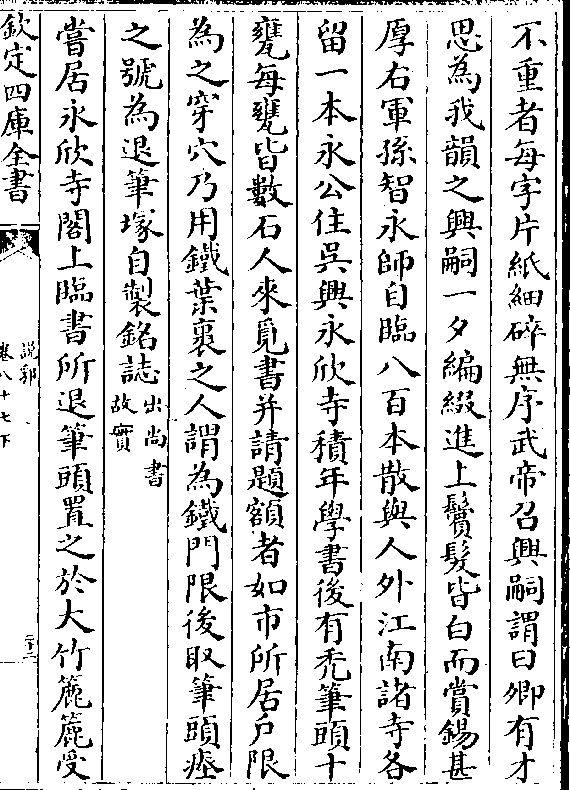 不重者每字片紙細碎無序武帝召興嗣謂曰卿有才
思為我韻之興嗣一夕編綴進上鬢髮皆白而賞錫甚
厚右軍孫智永師自臨八百本散與人外江南諸寺各
留一本永公住吳興永欣寺積年學書後有禿筆頭十
甕每甕皆數石人來覓書并請題額者如市所居戶限
為之穿穴乃用鐵葉裹之人謂為鐵門限後取筆頭瘞
之號為退筆塚自製銘誌出尚書
故實
嘗居永欣寺閣上臨書所退筆頭置之於大竹簏簏受
欽定四庫全書
說郛
卷八十七下
三十二